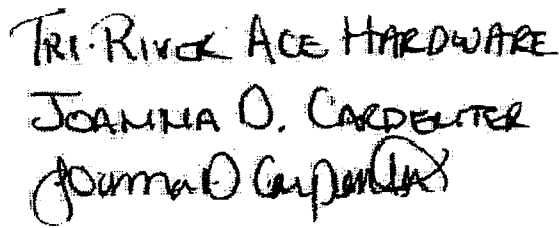 Tri-River Ace Hardware
Joanna D. Carpenter
Joanna D Carpenter